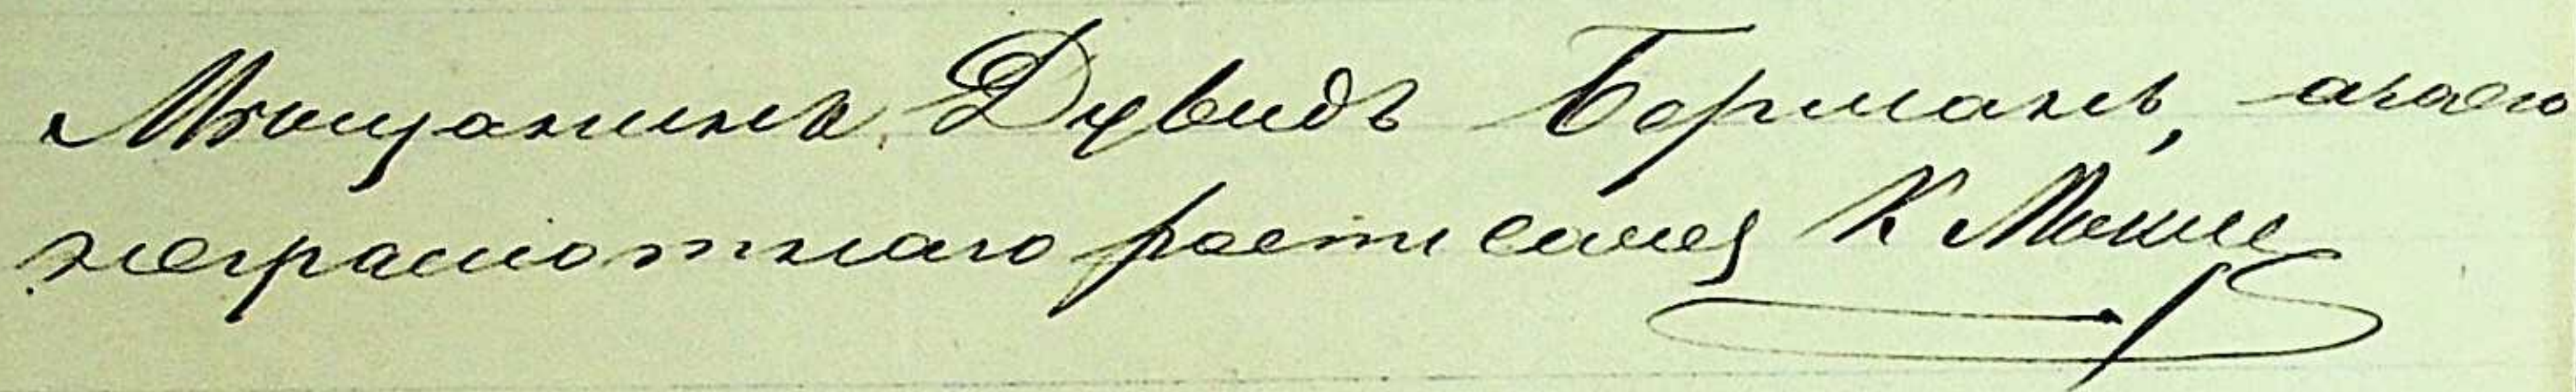 Мѣщанинъ Дувидъ Берманъ, а за его
неграмотнаго росписался К